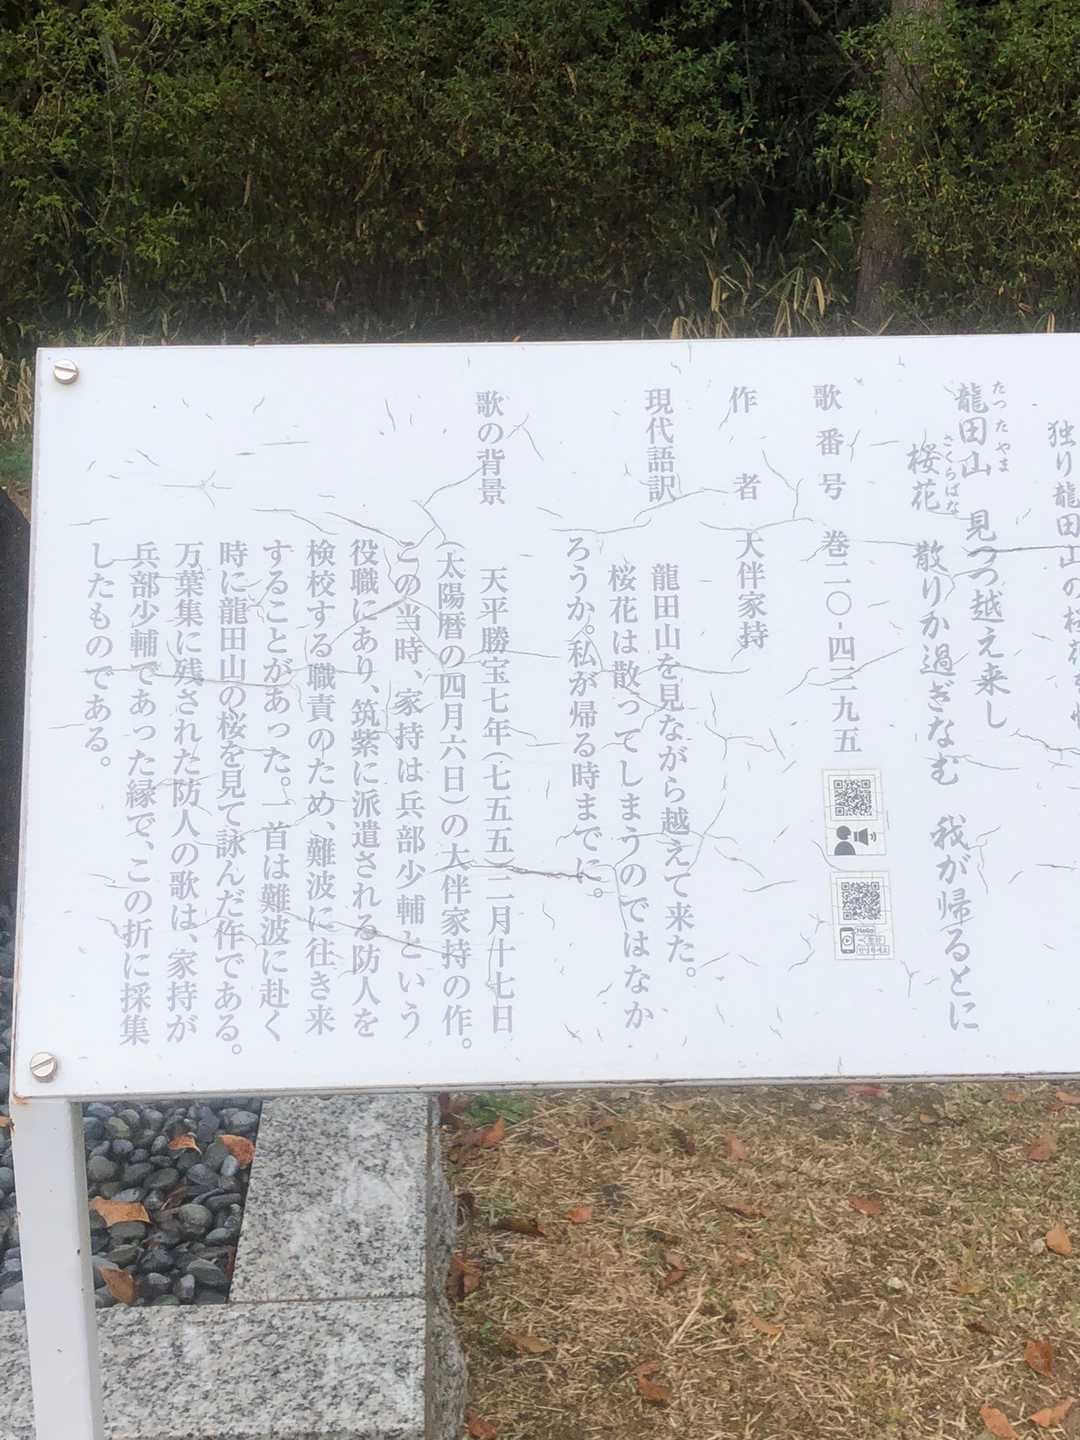 独り龍田山の桜花を惜
たつたやま
龍田山 見つつ越え来し
さくらばな
桜花 散りか過ぎなむ 我が帰るとに
歌番号 巻二〇-四三九五
作者 大伴家持
現代語訳 龍田山を見ながら越えて来た。
桜花は散ってしまうのではなか
ろうか。私が帰る時までに。
歌の背景 天平勝宝七年(七五五)二月十七日
(太陽暦の四月六日)の大伴家持の作。
この当時、家持は兵部少輔という
役職にあり、筑紫に派遣される防人を
検校する職責のため、難波に往き来
することがあった。一首は難波に赴く
時に龍田山の桜を見て詠んだ作である。
万葉集に残された防人の歌は、家持が
兵部少輔であった縁で、この折に採集
したものである。